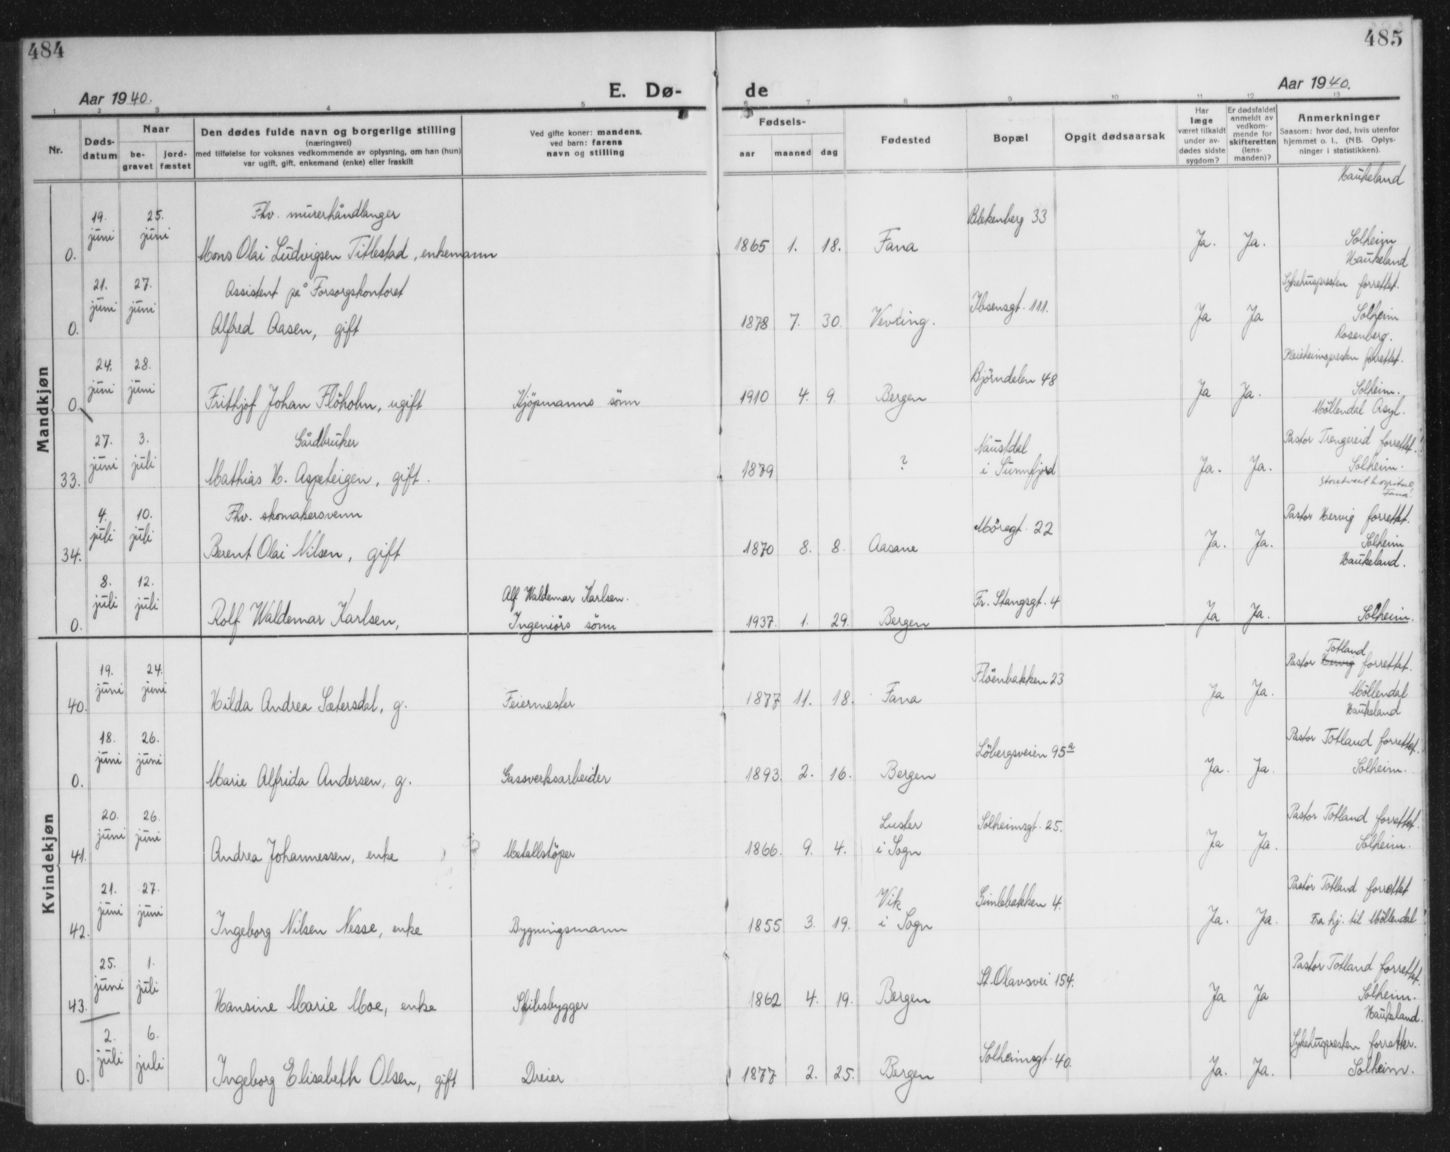 484
485
Aar 1940.
E. Dø-
de
Aar 1940.
1 2 3 4 5 6 7 8 9 10 11 12 13
Nr.
Døds-
datum
Naar
be-
gravet
jord-
fæstet
Den dødes fulde navn og borgerlige stilling
(næringsvei)
med tilføielse for voksnes vedkommende av oplysning, om han (hun)
var ugift, gift, enkemand (enke) eller fraskilt
Ved gifte koner: mandens,
ved barn: farens
navn og stilling
Fødsels-
aar
maaned
dag
Fødested
Bopæl
Opgit dødsaarsak
Har
læge
været tilkaldt
under av-
dødes sidste
sygdom?
Er dødsfaldet
anmeldt av
vedkom-
mende for
skifteretten
(lens-
manden)?
Anmerkninger
Saasom: hvor død, hvis utenfor
hjemmet o. l., (NB. Oplys-
ninger i statistikken).
Mandkjøn
Haukeland
0. 19. juni 25. juni Fhv. murerhåndlanger
Mons Olai Ludvigsen Titlestad, enkemann 1865 1. 18. Fana Blekenberg 33 Ja. Ja. Solheim
Haukeland
0. 21. juni 27. juni Assistent på Forsorgskontoret
Alfred Aasen, gift 1878 7. 30. Vevring. Ibsensgt. 111. Ja Ja Sykehuspresten forrettet.
Solheim
Rosenberg.
0. 24. juni 28. juni Frithjof Johan Flöholm, ugift Kjøpmanns sönn 1910 4. 9. Bergen Björndalen 48 Ja Ja. forrettet.
Solheim.
Möllendal Asyl.
33. 27. juni 3. juli Gårdbruker
Mathias H. Aspeteigen, gift. 1879 ? Naustdal
i Sunnfjord Ja. Ja. Pastor Trengereid forrettet.
Solheim.
Fana.
34. 4. juli 10. juli Fhv. skomakersvenn
Berent Olai Nilsen, gift 1870 8. 8. Aasane Möregt. 22 Ja. Ja. Pastor Hervig forrettet.
Solheim
Haukeland.
0. 8. juli 12. juli Rolf Waldemar Karlsen, Alf Waldemar Karlsen.
Ingeniörs sönn 1937. 1. 29. Bergen Fr. Stangsgt. 4 Ja Ja. Solheim.
Kvindekjøn
40. 19. juni 24. juni Hilda Andrea Sætersdal, g. Feiermester 1877 11. 18. Fana Flöenbakken 23 Ja Ja. Totland
Pastor Hervig forrettet.
Möllendal
Haukeland
0. 18. juni 26. juni Marie Alfrida Andersen, g. Gassverksarbeider 1893. 2. 16. Bergen Löbergsveien 95a Ja. Ja. Pastor Totland forrettet.
Solheim.
41. 20. juni 26. juni Andrea Johannessen, enke Metallstöper 1866. 9. 4. Luster
i Sogn Solheimsgt. 25. Ja Ja. Pastor Totland forrettet.
Solheim.
42. 21. juni 27. juni Ingeborg Nilsen Nesse, enke Bygningsmann 1855 3. 19. Vik
i Sogn Gimlebakken 4. Ja. Ja. Pastor Totland forrettet
Fra hj. til Möllendal
43. 25. juni 1. juli Hansine Marie Moe, enke Skibsbygger 1862 4. 19. Bergen St. Olavsvei 154. Ja Ja Pastor Totland forrettet.
Solheim.
Haukeland.
0. 2. juli 6. juli Ingeborg Elisabeth Olsen, gift Dreier 1877 2. 25. Bergen Solheimsgt. 40. Ja. Ja. Sykehuspresten forretter.
Solheim.